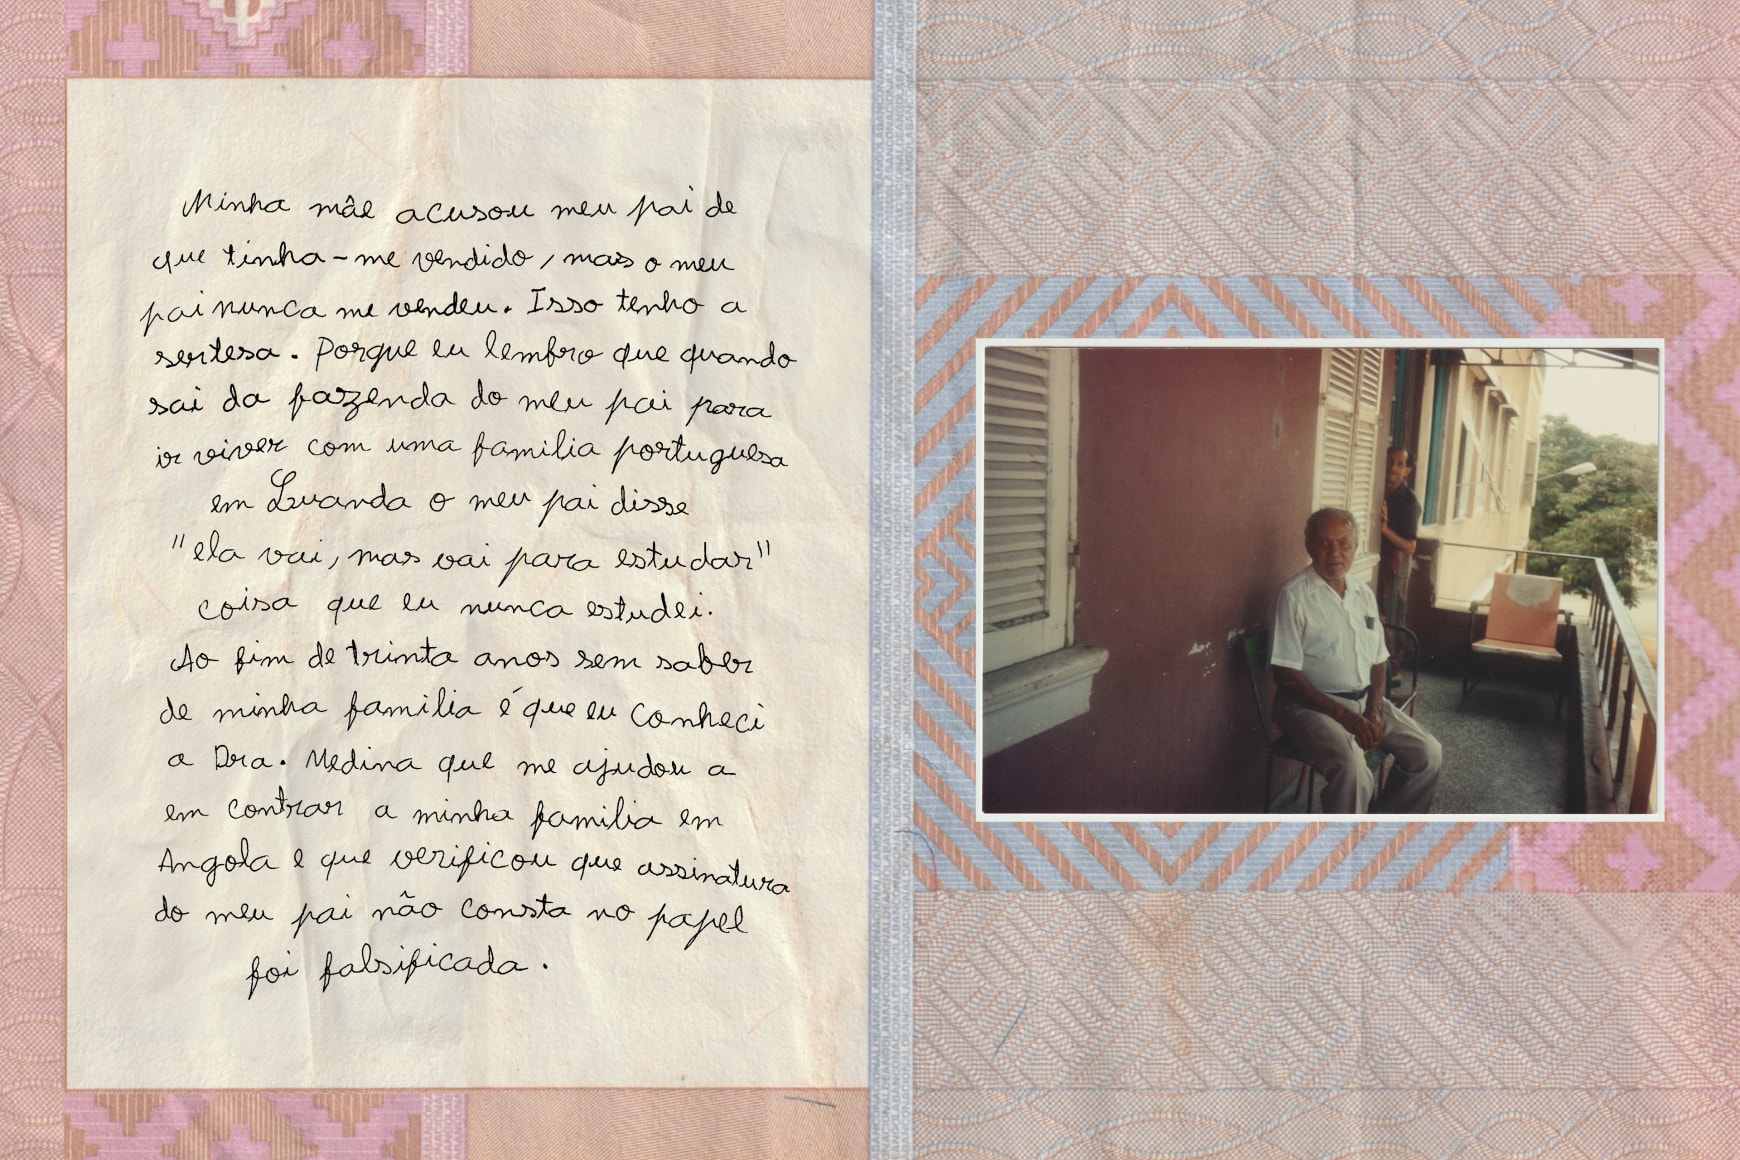 Minha mãe acusou meu pai de
que tinha-me vendido, mas o meu
pai nunca me vendeu. Isso tenho a
sertesa. Porque eu lembro que quando
sai da fazenda do meu pai para
ir viver com uma familia portuguesa
em Luanda o meu pai disse
"ela vai, mas vai para estudar"
coisa que eu nunca estudei.
Ao fim de trinta anos sem saber
de minha familia é que eu conheci
a Dra. Medina que me ajudou a
em contrar a minha familia em
Angola e que verificou que assinatura
do meu pai não consta no papel
foi falsificada.